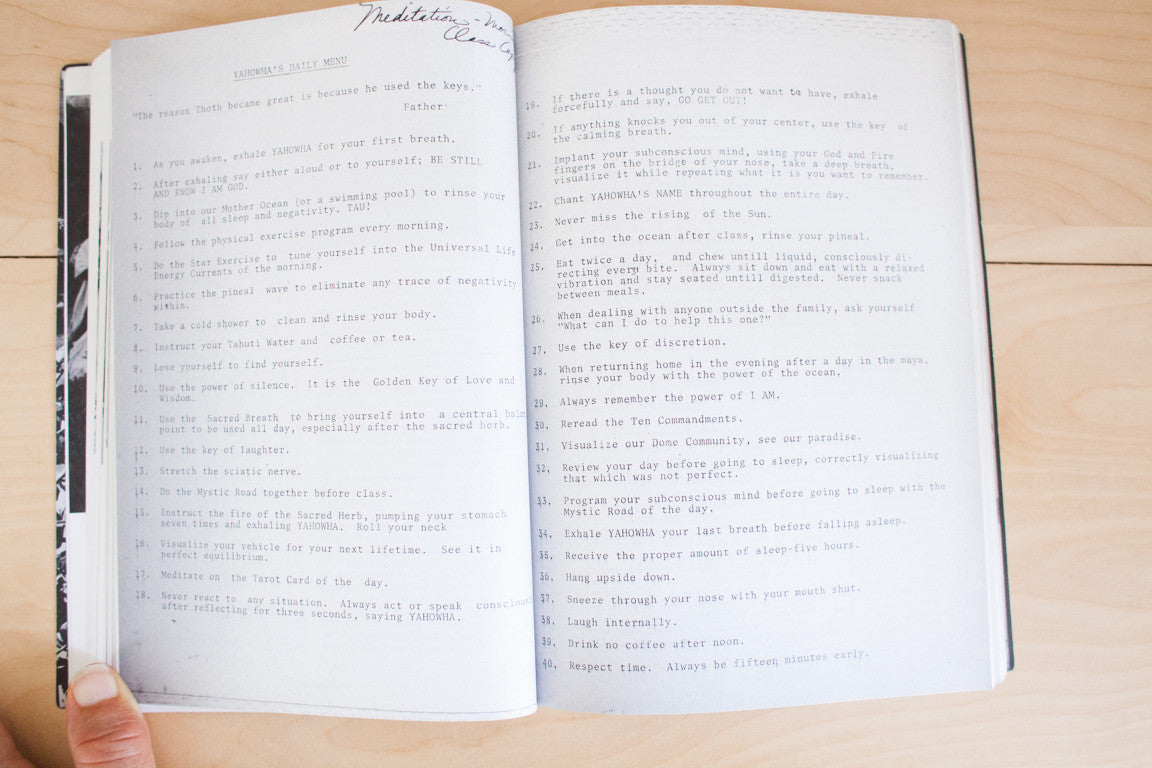 Meditation -
Class
YAHOWHA'S DAILY MENU
"The reason Thoth became great is because he used the keys."
Father
1. As you awaken, exhale YAHOWHA for your first breath.
2. After exhaling say either aloud or to yourself; BE STILL
AND KNOW I AM GOD.
3. Dip into our Mother Ocean (or a swimming pool) to rinse your
body of all sleep and negativity. TAU!
4. Follow the physical exercise program every morning.
5. Do the Star Exercise to tune yourself into the Universal Life
Energy Currents of the morning.
6. Practice the pineal wave to eliminate any trace of negativity
within.
7. Take a cold shower to clean and rinse your body.
8. Instruct your Tahuti Water and coffee or tea.
9. Lose yourself to find yourself.
10. Use the power of silence. It is the Golden Key of Love and
Wisdom.
11. Use the Sacred Breath to bring yourself into a central
point to be used all day, especially after the sacred herb.
12. Use the key of laughter.
13. Stretch the sciatic nerve.
14. Do the Mystic Road together before class.
15. Instruct the fire of the Sacred Herb, pumping your stomach
seven times and exhaling YAHOWHA. Roll your neck
16. Visualize your vehicle for your next lifetime. See it in
perfect equilibrium.
17. Meditate on the Tarot Card of the day.
18. Never react to any situation. Always act or speak
after reflecting for three seconds, saying YAHOWHA.
19. If there is a thought you do not want to have, exhale
forcefully and say, GO GET OUT!
20. If anything knocks you out of your center, use the key of
the calming breath.
21. Implant your subconscious mind, using your God and Fire
fingers on the bridge of your nose, take a deep breath,
visualize it while repeating what it is you want to remember.
22. Chant YAHOWHA'S NAME throughout the entire day.
23. Never miss the rising of the Sun.
24. Get into the ocean after class, rinse your pineal.
25. Eat twice a day, and chew untill liquid, consciously di-
recting every bite. Always sit down and eat with a relaxed
vibration and stay seated untill digested. Never snack
between meals.
26. When dealing with anyone outside the family, ask yourself
"What can I do to help this one?"
27. Use the key of discretion.
28. When returning home in the evening after a day in the maya,
rinse your body with the power of the ocean.
29. Always remember the power of I AM.
30. Reread the Ten Commandments.
31. Visualize our Dome Community, see our paradise.
32. Review your day before going to sleep, correctly visualizing
that which was not perfect.
33. Program your subconscious mind before going to sleep with the
Mystic Road of the day.
34. Exhale YAHOWHA your last breath before falling asleep.
35. Receive the proper amount of sleep-five hours.
36. Hang upside down.
37. Sneeze through your nose with your mouth shut.
38. Laugh internally.
39. Drink no coffee after noon.
40. Respect time. Always be fifteen minutes early.